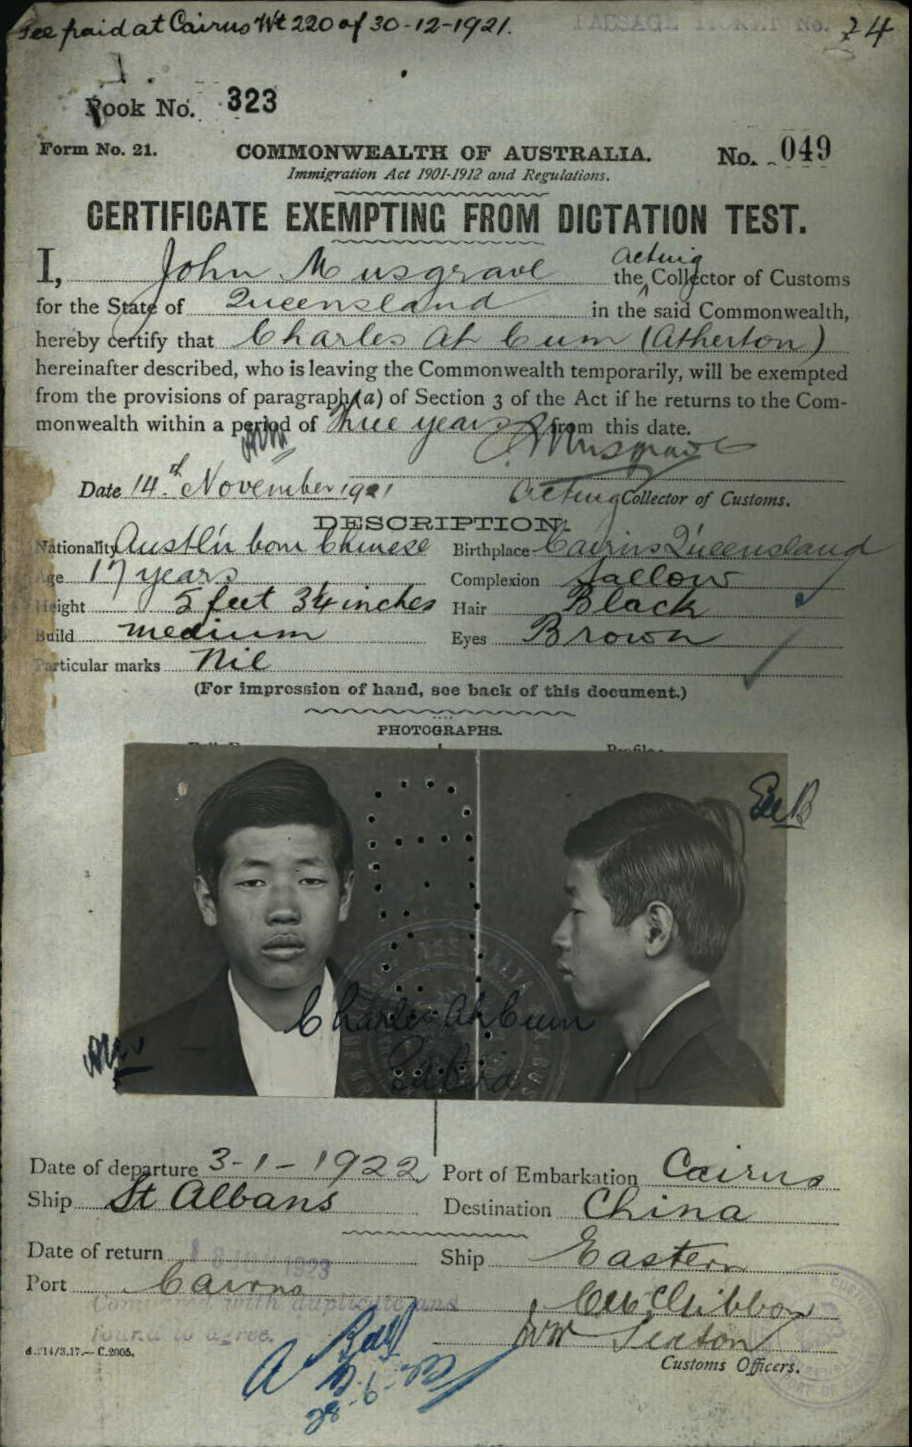 Fee paid at Cairns Wt 220 of 30-12-1921.
24
Book No. 323
Form No. 21.
COMMONWEALTH OF AUSTRALIA.
No. 049
Immigration Act 1901-1912 and Regulations.
CERTIFICATE EXEMPTING FROM DICTATION TEST.
I, John Musgrave the Acting Collector of Customs
for the State of Queensland in the said Commonwealth,
hereby certify that Charles Ah Cum (Atherton)
hereinafter described, who is leaving the Commonwealth temporarily, will be exempted
from the provisions of paragraph (a) of Section 3 of the Act if he returns to the Com-
monwealth within a period of three years from this date.
Musgrave
Date 14th November 1921
Acting Collector of Customs.
DESCRIPTION.
Nationality Austl'n born Chinese Birthplace Cairns Queensland
Age 17 years Complexion Sallow
Height 5 feet 3¼ inches Hair Black
Build medium Eyes Brown
Particular marks Nil
(For impression of hand, see back of this document.)
PHOTOGRAPHS.
Charles Ah Cum
Date of departure 3-1-1922 Port of Embarkation Cairns
Ship St Albans Destination China
Date of return 1923 Ship Eastern
Port Cairns
Compared with duplicate and
found to agree.
Seaton
Customs Officers.
d.:14/3.17.—C.2005.